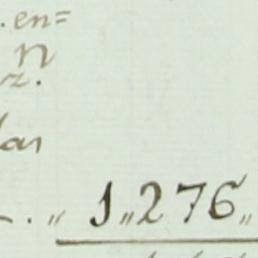 . en=
n
z.
las
. „ 1„276„